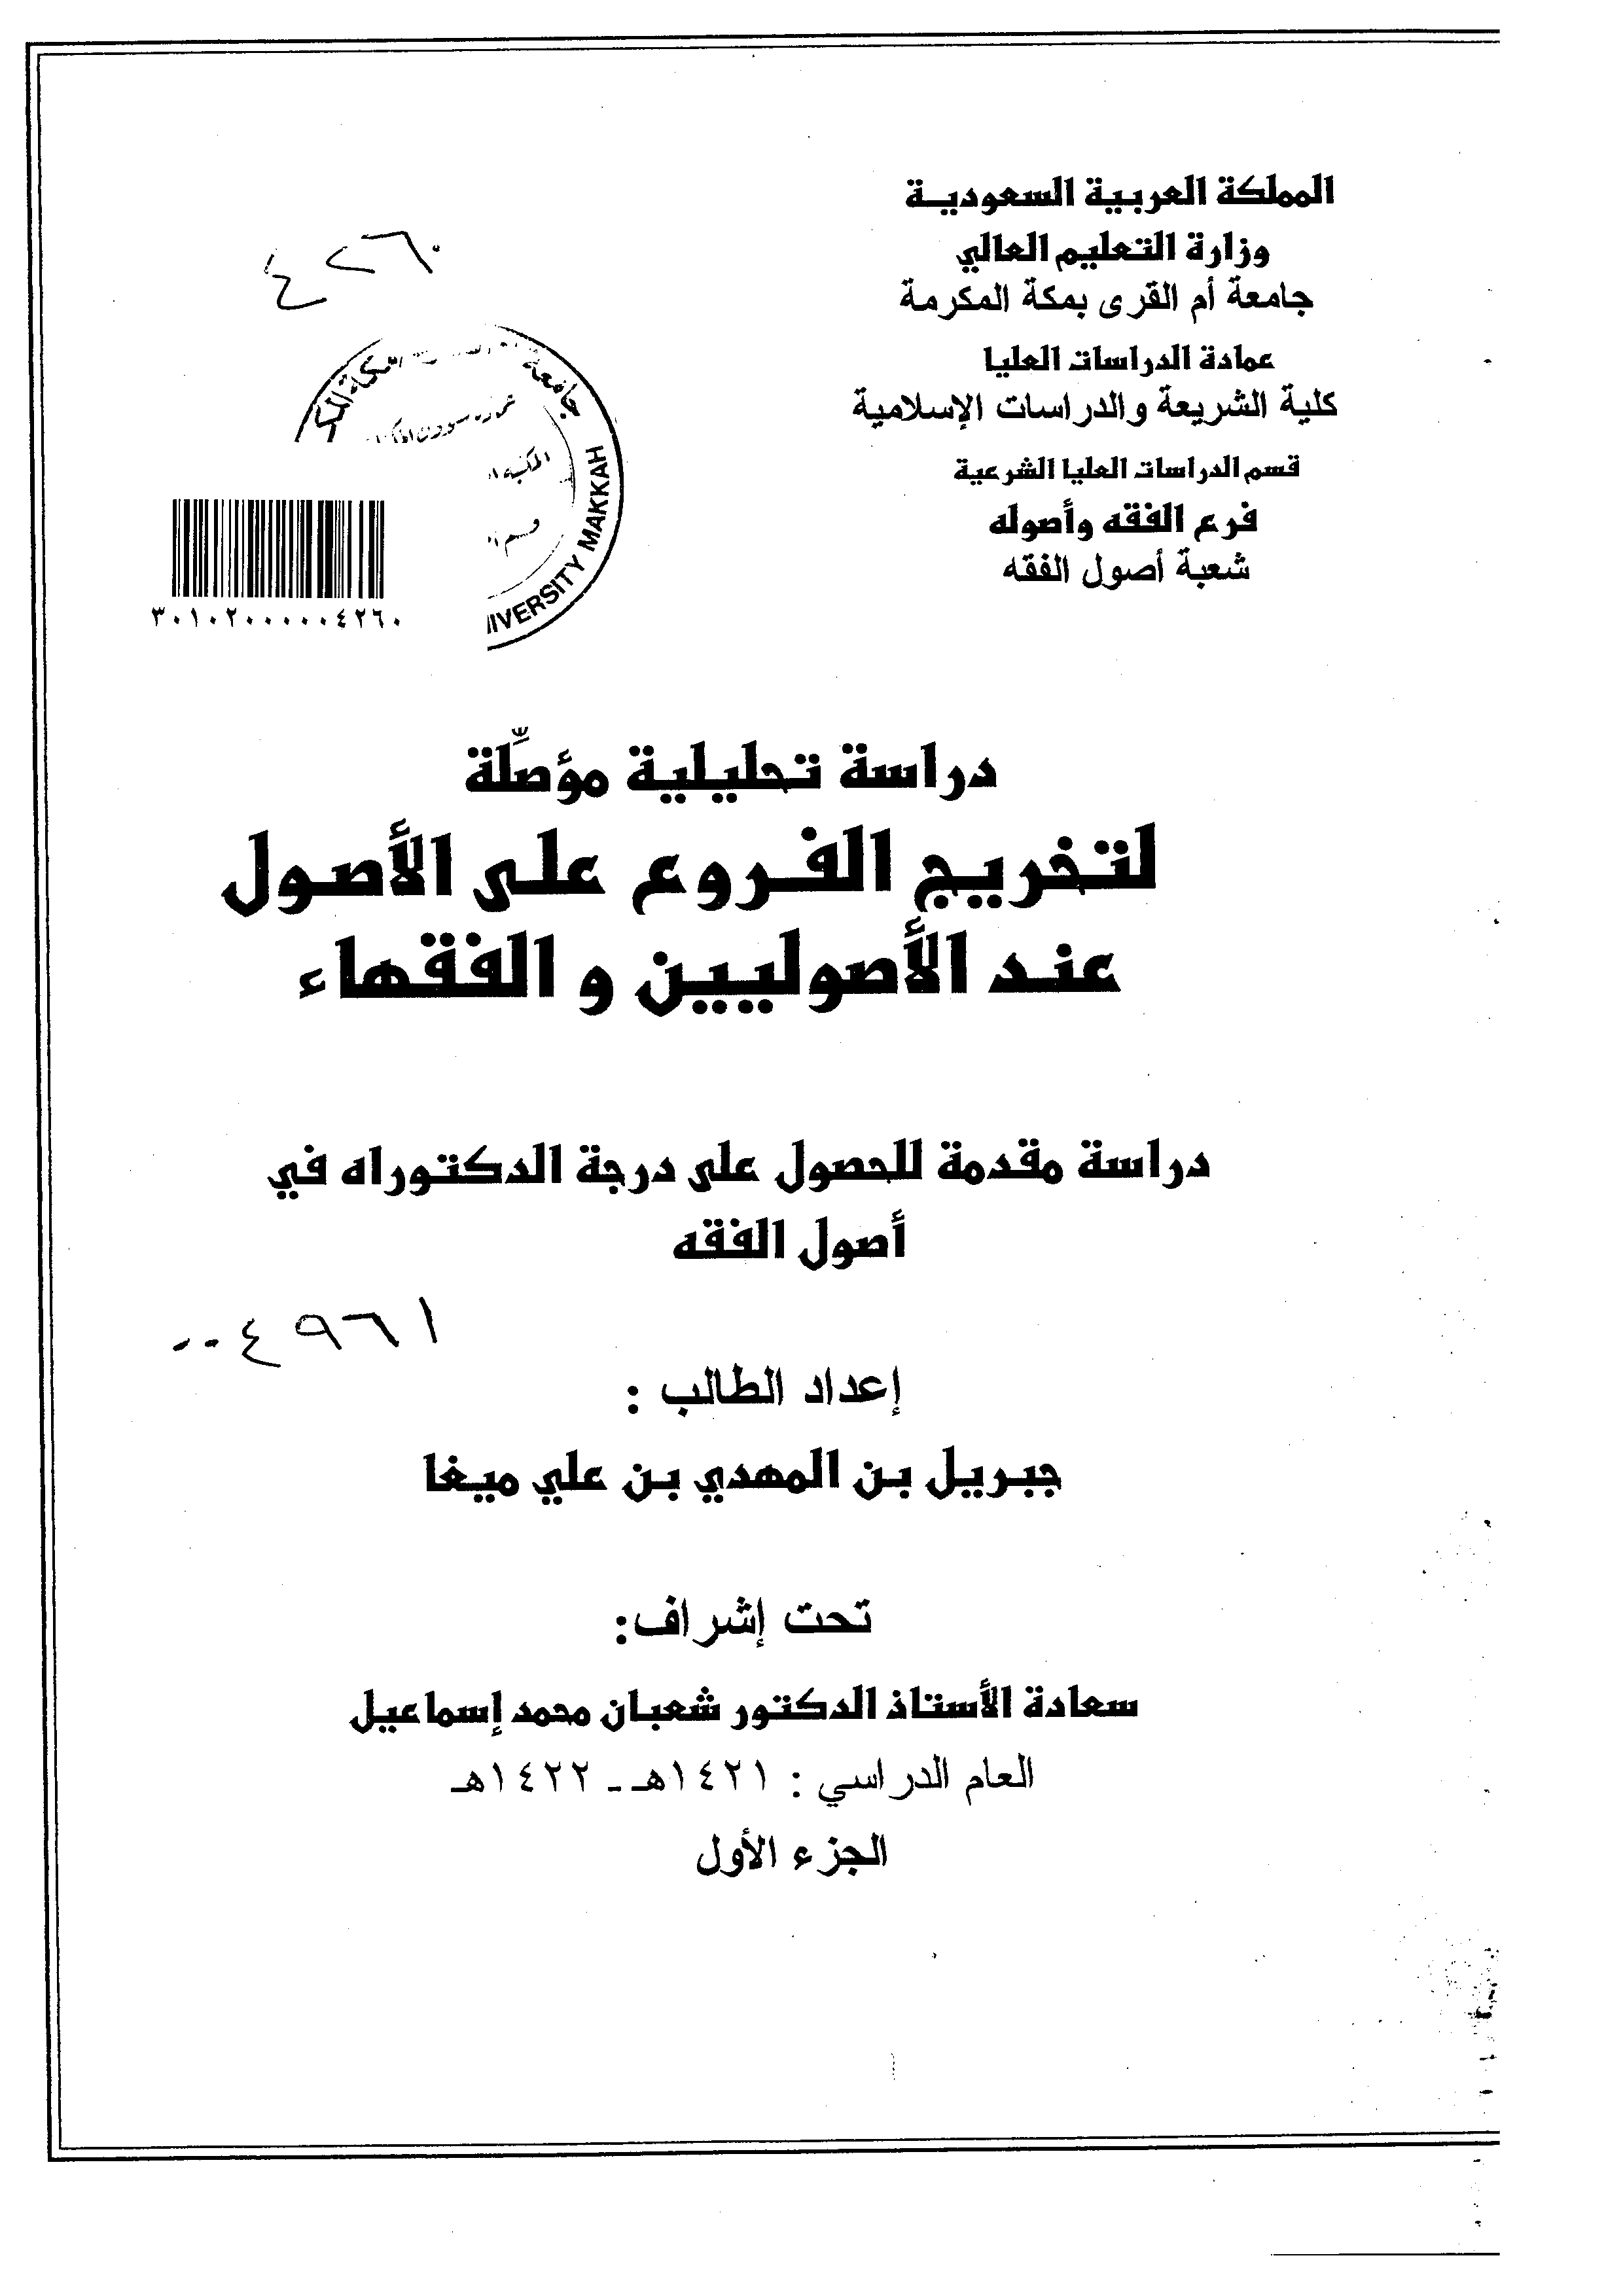 المملكة العربية السعودية
وزارة التعليم العالي
جامعة أم القرى بمكة المكرمة
عمادة الدراسات العليا
كلية الشريعة والدراسات الإسلامية
قسم الدراسات العليا الشرعية
فرع الفقه وأصوله
شعبة أصول الفقه
٤٢٦٠
جامعة
IVERSITY MAKKAH
٣٠١٠٢٠٠٠٠٠٤٢٦٠
دراسة تحليلية مؤصّلة
لتخريج الفروع على الأصول
عند الأصوليين و الفقهاء
دراسة مقدمة للحصول على درجة الدكتوراه في
أصول الفقه
٠٠٤٩٦١
إعداد الطالب :
جبريل بن المهدي بن علي ميغا
تحت إشراف:
سعادة الأستاذ الدكتور شعبان محمد إسماعيل
العام الدراسي : ١٤٢١هـ - ١٤٢٢هـ
الجزء الأول